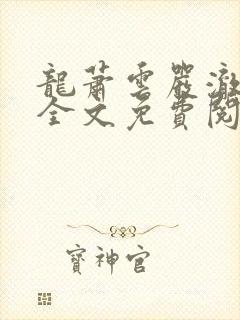 龍蕭雲嚴澈
全文免費閱
寶神官